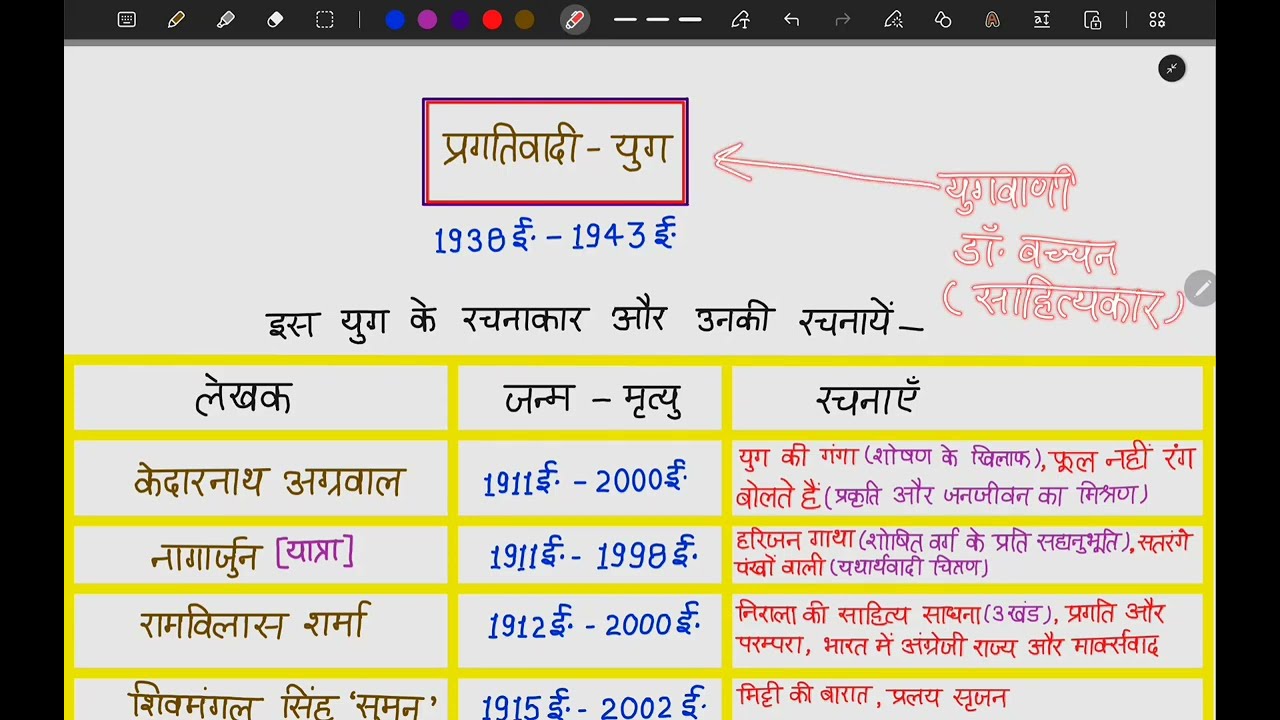 प्रगतिवादी - युग
1938 ई. - 1943 ई.
युगवाणी
डॉ. बच्चन
(साहित्यकार)
इस युग के रचनाकार और उनकी रचनायें -
लेखक जन्म - मृत्यु रचनाएँ
केदारनाथ अग्रवाल 1911 ई. - 2000 ई. युग की गंगा (शोषण के खिलाफ), फूल नहीं रंग
बोलते हैं (प्रकृति और जनजीवन का मिश्रण)
नागार्जुन [यात्रा] 1911 ई. - 1998 ई. हरिजन गाथा (शोषित वर्ग के प्रति सहानुभूति), सतरंगे
पंखों वाली (यथार्थवादी चित्रण)
रामविलास शर्मा 1912 ई. - 2000 ई. निराला की साहित्य साधना (3 खंड), प्रगति और
परम्परा, भारत में अंग्रेजी राज्य और मार्क्सवाद
शिवमंगल सिंह 'सुमन' 1915 ई. - 2002 ई. मिट्टी की बारात, प्रलय सृजन